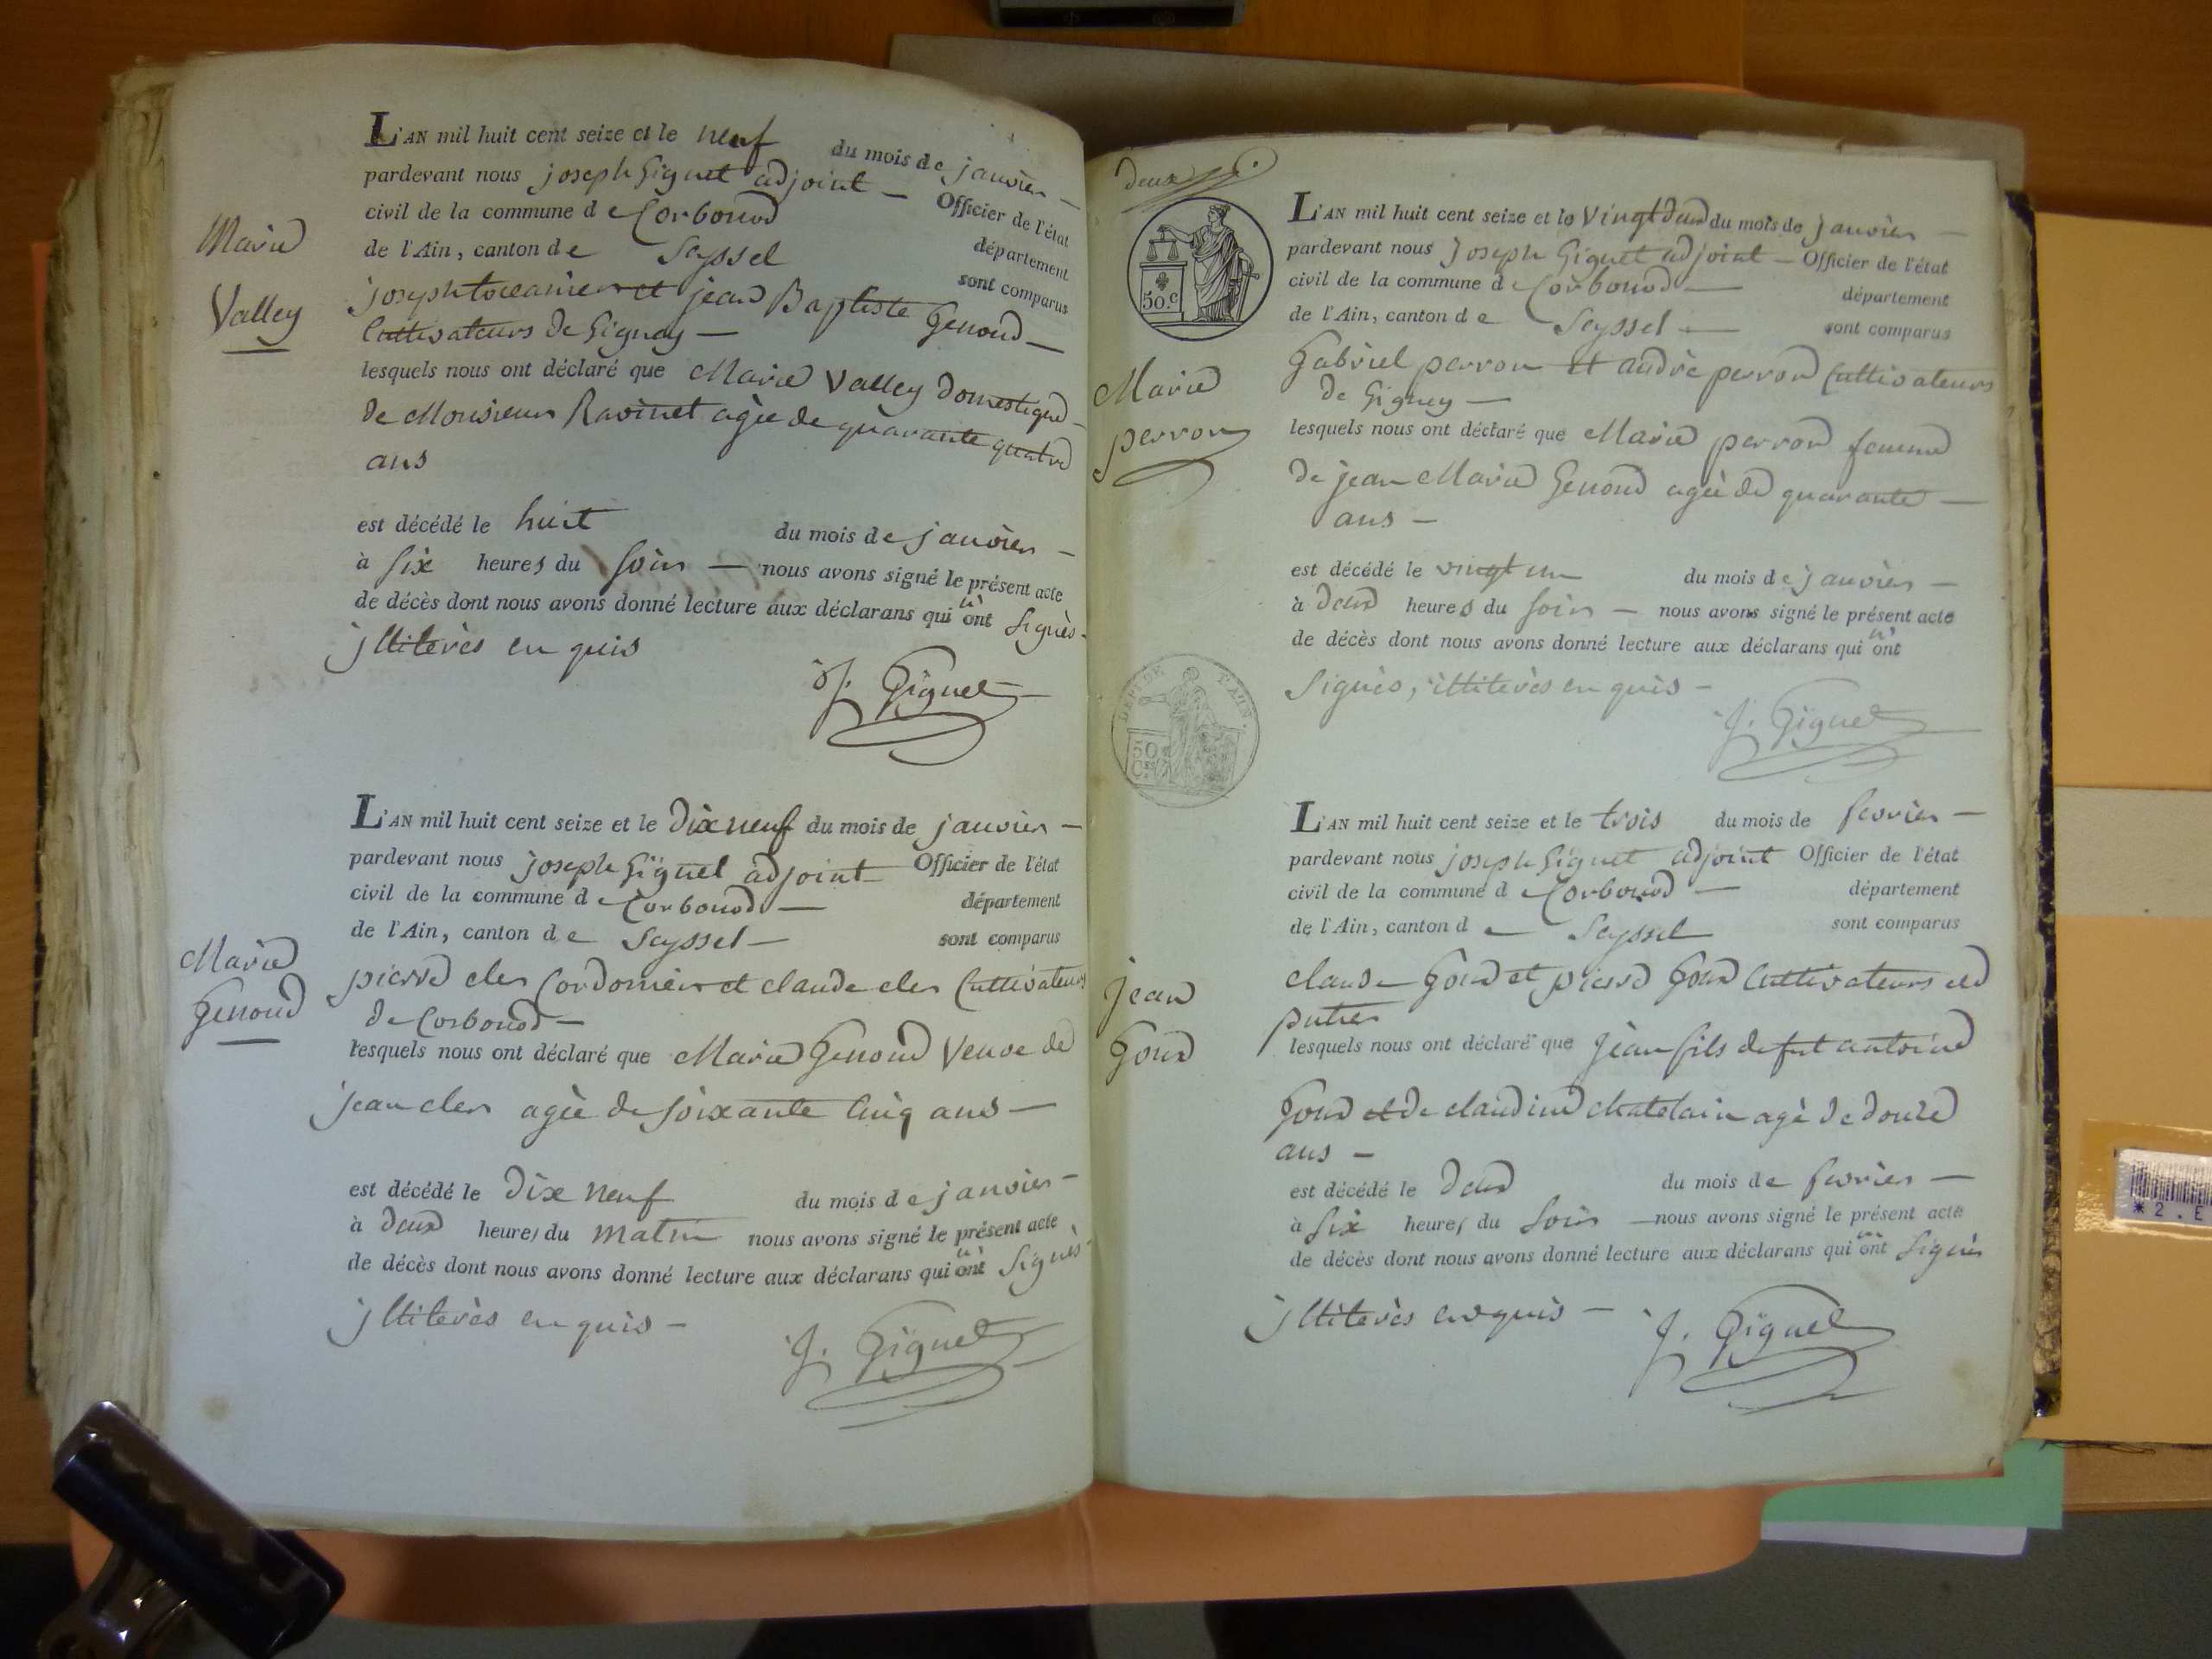 L'AN mil huit cent seize et le neuf du mois de janvier —
pardevant nous joseph Giguet adjoint — Officier de l'état
civil de la commune de Corbonod département
de l'Ain, canton de Seyssel sont comparus
joseph et jean Baptiste Genoud —
Cultivateurs de Gignez —
Marie
Valley
lesquels nous ont déclaré que Marie Valley domestique
de Monsieur Ravinet agèe de quarante quatre
ans
est décédé le huit du mois de janvier —
à six heures du soir — nous avons signé le présent acte
de décès dont nous avons donné lecture aux déclarans qui n'ont signès
jlliterès enquis
J. Giguet
L'AN mil huit cent seize et le dix neuf du mois de janvier —
pardevant nous joseph Giguet adjoint Officier de l'état
civil de la commune de Corbonod — département
de l'Ain, canton de Seyssel — sont comparus
Marie
Genoud
pierre cler Cordonier et claude cler Cultivateurs
de Corbonod —
lesquels nous ont déclaré que Marie Genoud Veuve de
jean cler agèe de soixante Cinq ans —
est décédé le dix neuf du mois de janvier —
à deux heures du matin nous avons signé le présent acte
de décès dont nous avons donné lecture aux déclarans qui n'ont signès
jlliterès enquis —
J. Giguet
deux
50.c
L'AN mil huit cent seize et le vingt deux du mois de janvier —
pardevant nous Joseph Giguet adjoint — Officier de l'état
civil de la commune de Corbonod — département
de l'Ain, canton de Seyssel — sont comparus
Gabriel perron et andrè perron Cultivateurs
de Gignez —
Marie
perron
lesquels nous ont déclaré que Marie perron femme
de jean Marie Genoud agèe de quarante —
ans —
est décédé le vingt un du mois de janvier —
à deux heures du soir — nous avons signé le présent acte
de décès dont nous avons donné lecture aux déclarans qui n'ont
signès, illiterès enquis —
J. Giguet
DEPT. DE L'AIN.
50
Cs.
L'AN mil huit cent seize et le trois du mois de fevrier —
pardevant nous joseph Giguet adjoint Officier de l'état
civil de la commune de Corbonod — département
de l'Ain, canton de Seyssel sont comparus
jean
Goux
claude Goux et pierre Goux Cultivateurs de
lesquels nous ont déclaré que jean fils de fut antoine
Goux et de claudine chatelain agè de douze
ans —
est décédé le deux du mois de fevrier —
à six heures du soir — nous avons signé le présent acte
de décès dont nous avons donné lecture aux déclarans qui n'ont signès
jlliterès enquis —
J. Giguet
*2.E